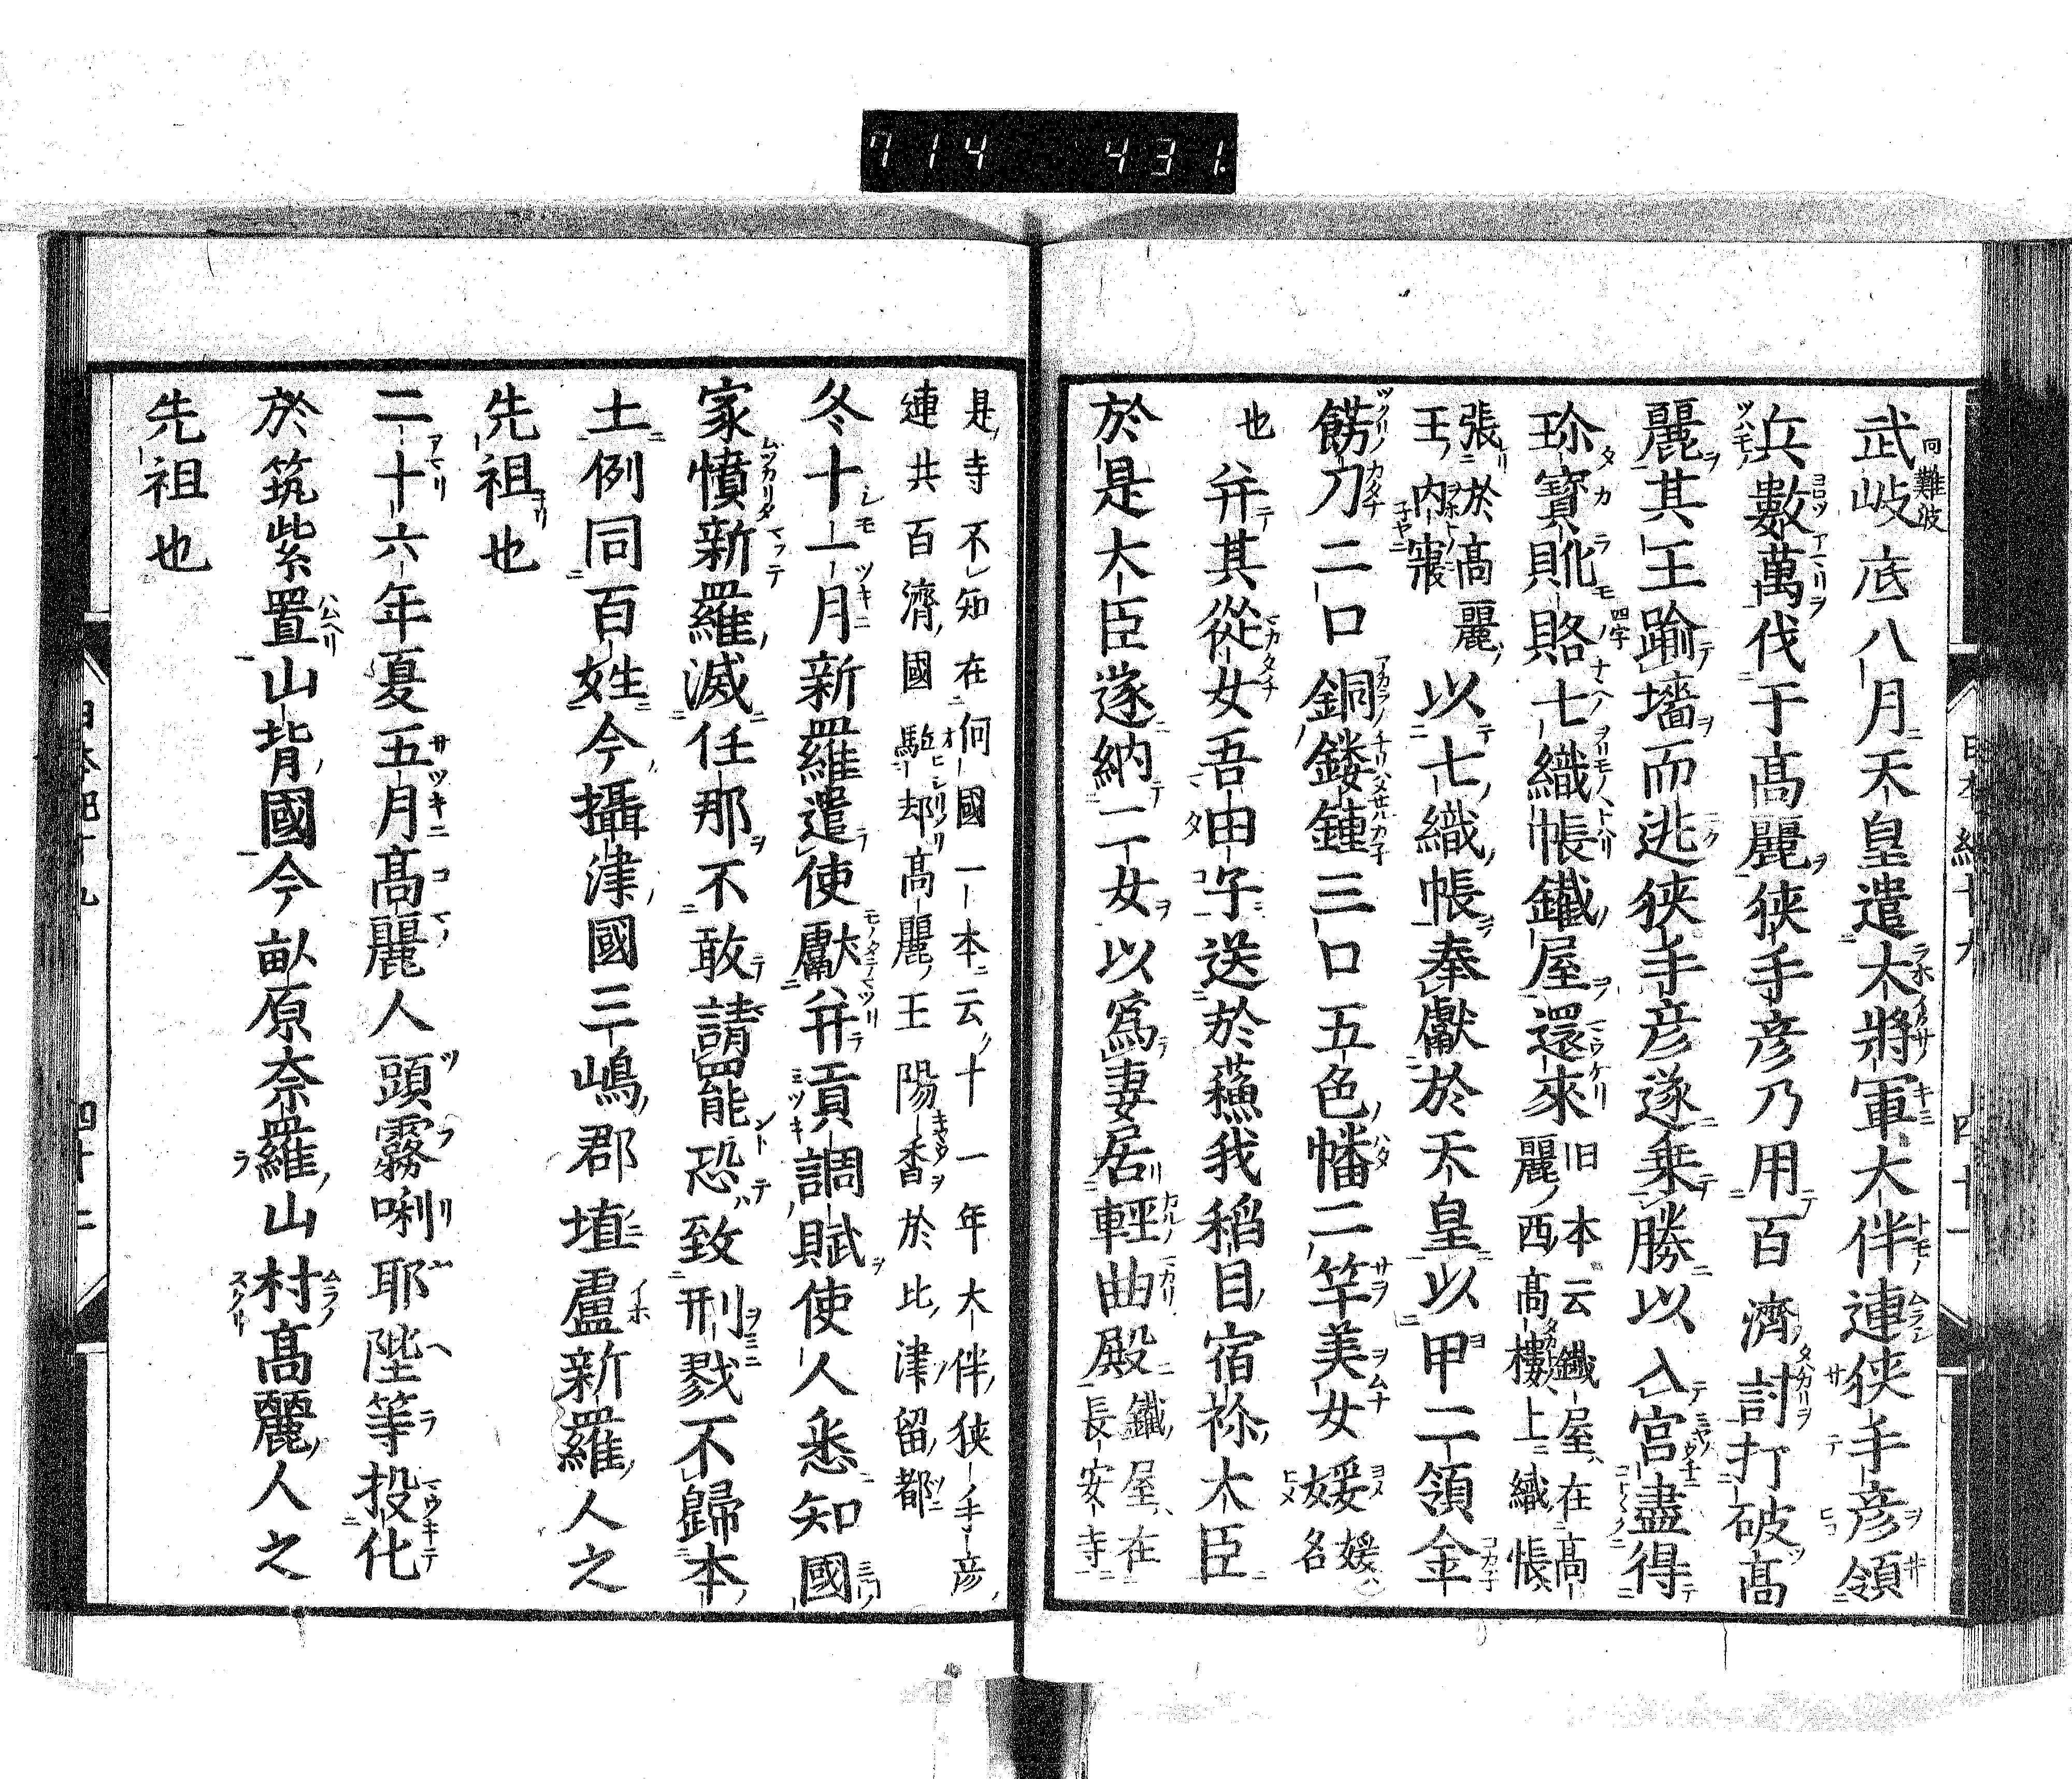 714 431.
武岐底八月天皇遣大將軍大伴連狹手彥領
兵數萬伐于高麗狹手彥乃用百濟討打破高
麗其王踰墻而逃狹手彥遂乗勝以入宮盡得
珍寶貨賂七織帳鐵屋還來旧本云鐵屋在高麗西高樓上織帳
張於高麗王內寢以七織帳奉獻於天皇以甲二領金
餝刀二口銅鏤鍾三口五色幡二竿美女媛媛名
也并其從女吾田子送於蘓我稲目宿祢大臣
於是大臣遂納二女以爲妻居輕曲殿鐵屋在長安寺
是寺不知在何國一本云十一年大伴狹手彥
連共百濟國駈却高麗王陽香於比津留都
冬十一月新羅遣使獻并貢調賦使人悉知國
家憤新羅滅任那不敢請罷恐致刑戮不歸本
土例同百姓今攝津國三嶋郡埴盧新羅人之
先祖也
二十六年夏五月髙麗人頭霧唎耶陛等投化
於筑紫置山背國今畝原奈羅山村髙麗人之
先祖也
日本紀十九 四十一
四十二